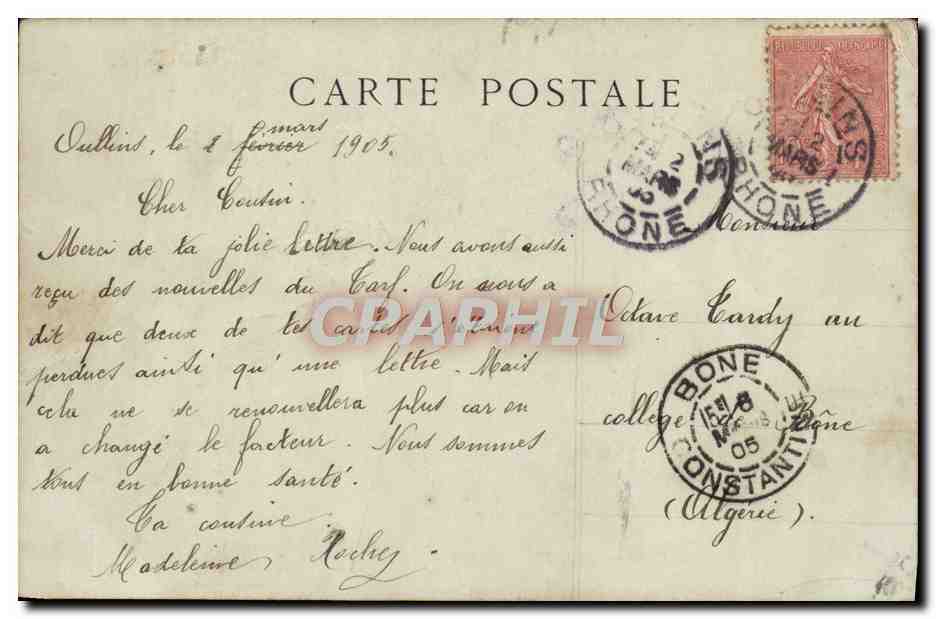 CARTE POSTALE
Oullins, le 2 février mars 1905.
Cher Cousin.
Merci de ta jolie lettre. Nous avons aussi
reçu des nouvelles du Tarf. On nous a
dit que deux de tes cartes s'étaient
perdues ainsi qu'une lettre. Mais
cela ne se renouvellera plus car on
a changé le facteur. Nous sommes
tous en bonne santé.
Ta cousine.
Madeleine Rochez.
Monsieur
Octave Tardy au
collège de Bône
(Algérie).
RHONE
MARS
RHONE
2
MARS
BONE
6
05
CONSTANTINE
CPAPHIL